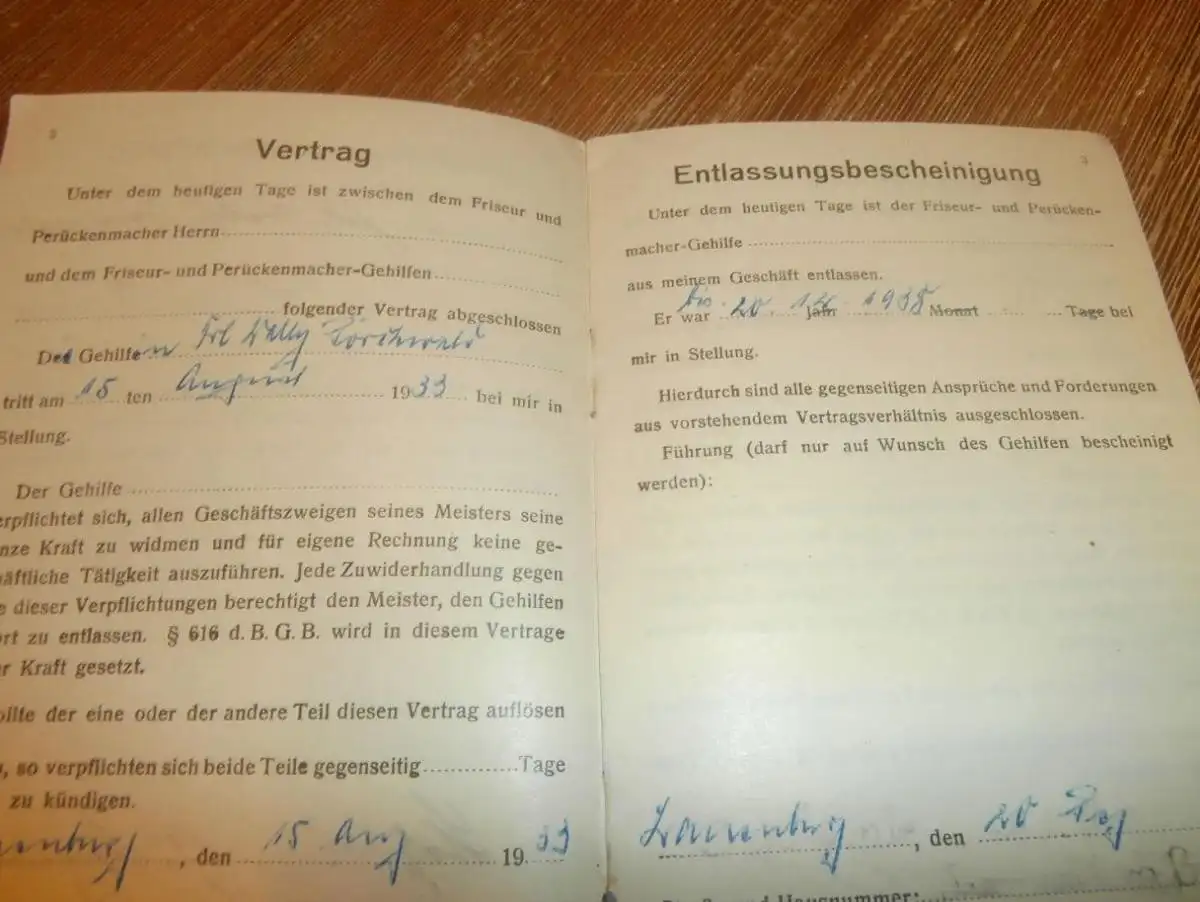 2
Vertrag
Unter dem heutigen Tage ist zwischen dem Friseur und
Perückenmacher Herrn
und dem Friseur- und Perückenmacher-Gehilfen
folgender Vertrag abgeschlossen
Der Gehilfen Frl Wally
tritt am 15 ten August 1933 bei mir in
Stellung.
Der Gehilfe
erpflichtet sich, allen Geschäftszweigen seines Meisters seine
nze Kraft zu widmen und für eigene Rechnung keine ge-
äftliche Tätigkeit auszuführen. Jede Zuwiderhandlung gegen
e dieser Verpflichtungen berechtigt den Meister, den Gehilfen
ort zu entlassen. § 616 d. B. G. B. wird in diesem Vertrage
er Kraft gesetzt.
ollte der eine oder der andere Teil diesen Vertrag auflösen
, so verpflichten sich beide Teile gegenseitig Tage
zu kündigen.
, den 15 Aug 1933
3
Entlassungsbescheinigung
Unter dem heutigen Tage ist der Friseur- und Perücken-
macher-Gehilfe
aus meinem Geschäft entlassen.
Er war bis 20. 12. Jahr 1938 Monat Tage bei
mir in Stellung.
Hierdurch sind alle gegenseitigen Ansprüche und Forderungen
aus vorstehendem Vertragsverhältnis ausgeschlossen.
Führung (darf nur auf Wunsch des Gehilfen bescheinigt
werden):
Lauenburg, den 20 Dez
und Hausnummer: